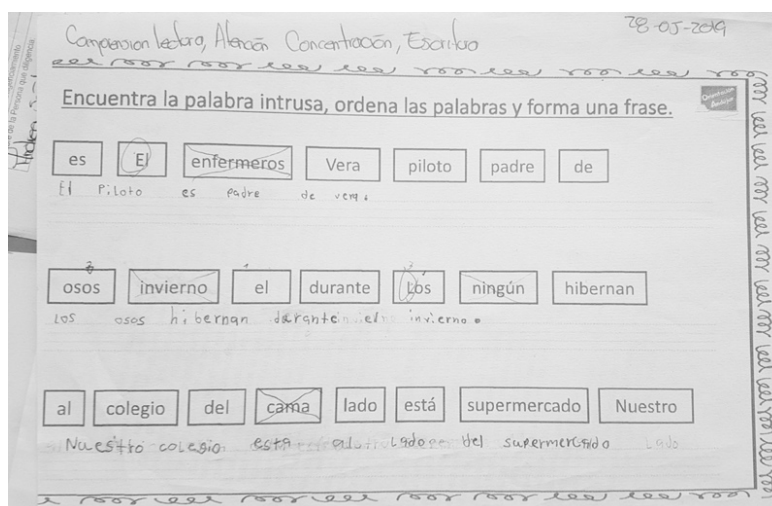 28-05-2019
Comprension lectora, Atención Concentración, Escritura
Encuentra la palabra intrusa, ordena las palabras y forma una frase.
es El enfermeros Vera piloto padre de
El Piloto es padre de vera.
osos invierno el durante Los ningún hibernan
Los osos hibernan durante el invierno.
al colegio del cama lado está supermercado Nuestro
Nuestro colegio esta al lado del supermercado